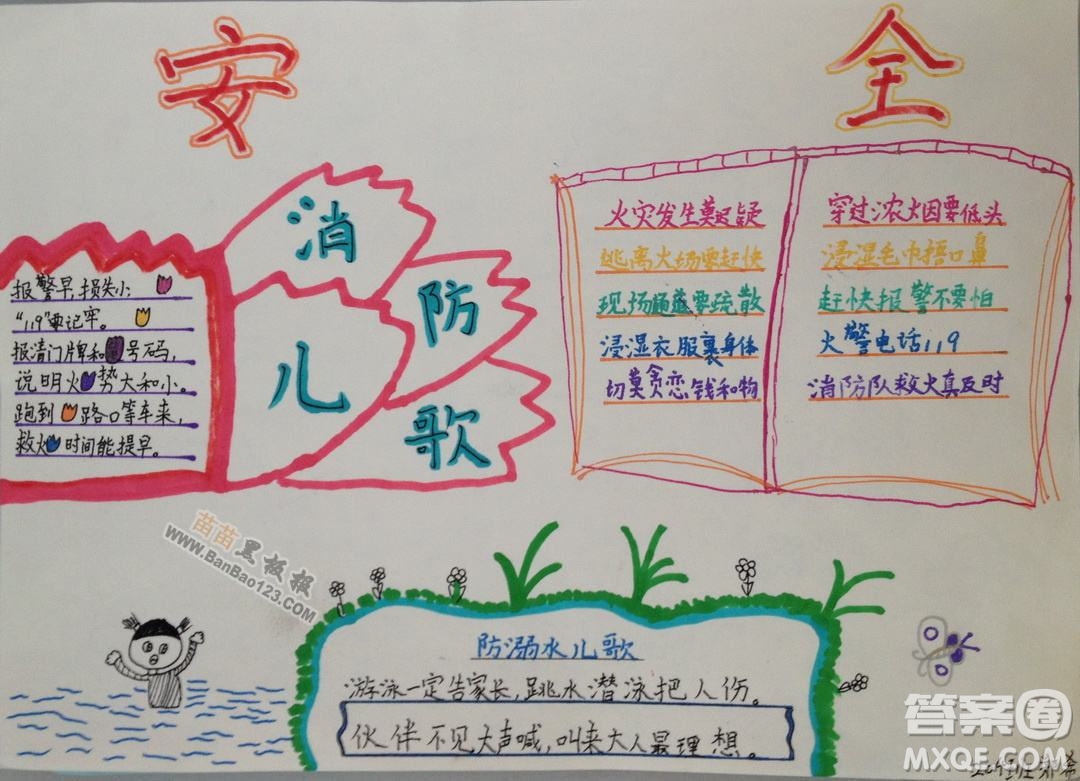 安全
消防儿歌
报警早,损失小;
"119"要记牢。
报清门牌和号码,
说明火势大和小。
跑到路口等车来,
救火时间能提早。
火灾发生莫迟疑
逃离火场要赶快
现场通道要疏散
浸湿衣服裹身体
切莫贪恋钱和物
穿过浓烟要低头
浸湿毛巾捂口鼻
赶快报警不要怕
火警电话119
消防队救火真及时
苗苗黑板报
www.BanBao123.com
防溺水儿歌
游泳一定告家长,跳水潜泳把人伤。
伙伴不见大声喊,叫来大人最理想。
答案圈
MXQE.COM